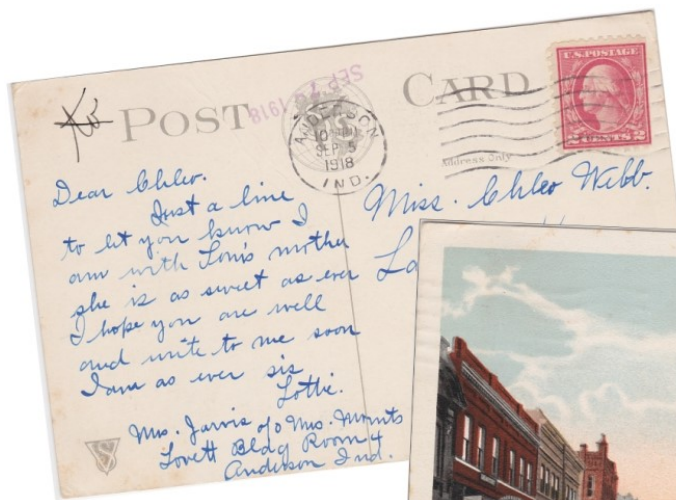 POST CARD
SEP 7 1918
ANDERSON
SEP 5
1918
IND.
U.S. POSTAGE
CENTS 2
Address Only
Dear Chleo.
Just a line
to let you know I
am with Lon's mother
she is as sweet as ever
I hope you are well
and write to me soon
I am as ever sis
Lottie.
Mrs. Jarvis c/o Mrs. Mounts
Lovett Bldg Room 4
Anderson Ind.
Miss. Chleo Webb.